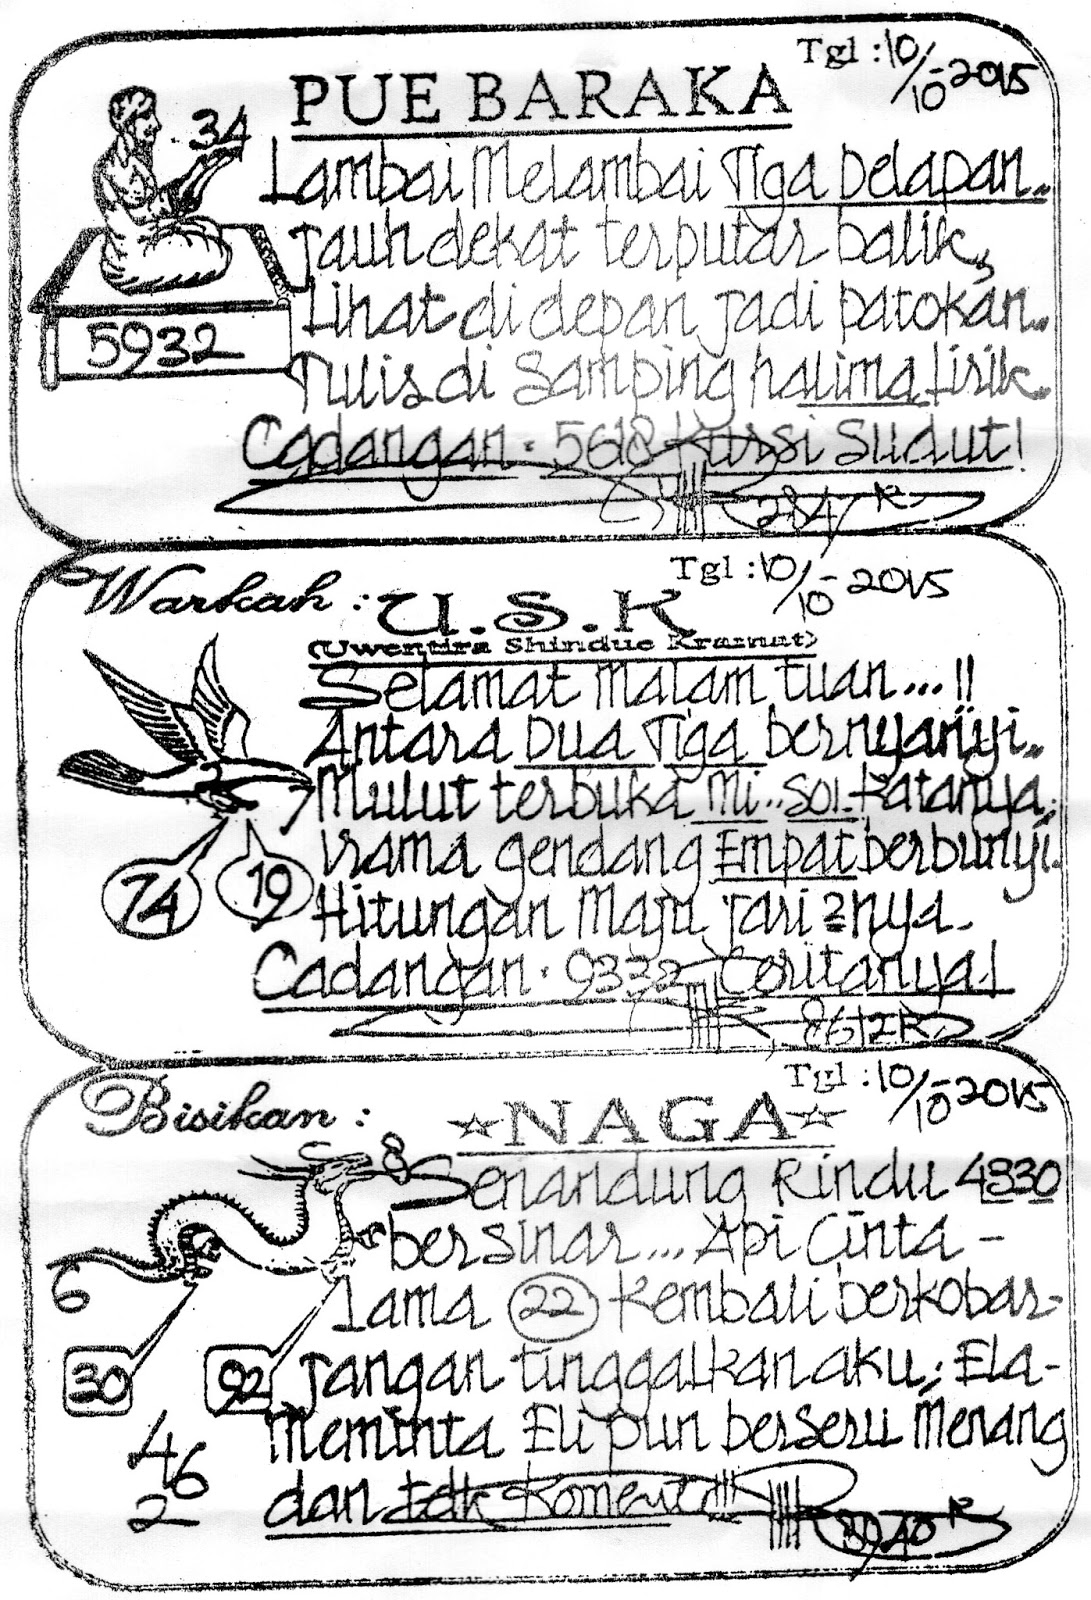 Tgl : 10/10-2015
PUE BARAKA
34
Lambai Melambai Tiga Delapan..
jauh dekat terputar balik,
Lihat di depan jadi patokan..
5932
Tulis di Samping halima lirik.
Cadangan · 5618 Kursi Sudut!
Tgl : 10/10-2015
Warkah : U.S.K
(Uwentira Shindue Kramat)
Selamat malam tuan...!!
Antara Dua Tiga bernyanyi..
Mulut terbuka Mi.. Sol. Katanya;
Irama gendang Empat berbunyi.
74 19
Hitungan Maju jari 2nya.
Cadangan · 9332 Ceritanya!
8612R
Tgl : 10/10-2015
Bisikan : ☆NAGA☆
8
Senandung Rindu 4830
bersinar... Api Cinta -
6
Lama 22 Kembali berkobar-
30 92
jangan tinggalkan aku; Ela-
Meminta Eli pun berseru Menang
46
2
dan tdk Koment